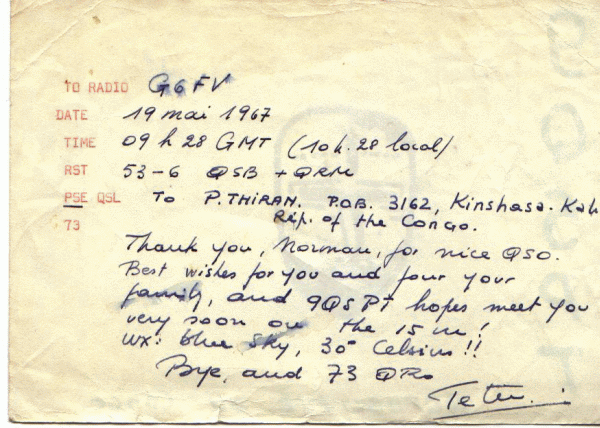 TO RADIO G6FV
DATE 19 mai 1967
TIME 09 h 28 GMT (10h.28 local)
RST 53-6 QSB + QRM
PSE QSL To P.THIRAN. P.O.B. 3162, Kinshasa. Kal
73 Rep. of the Congo.
Thank you, Norman, for nice QSO.
Best wishes for you and four your
family, and 9Q5PT hopes meet you
very soon on the 15 m!
WX: blue sky, 30° Celsius!!
Bye, and 73 QRo